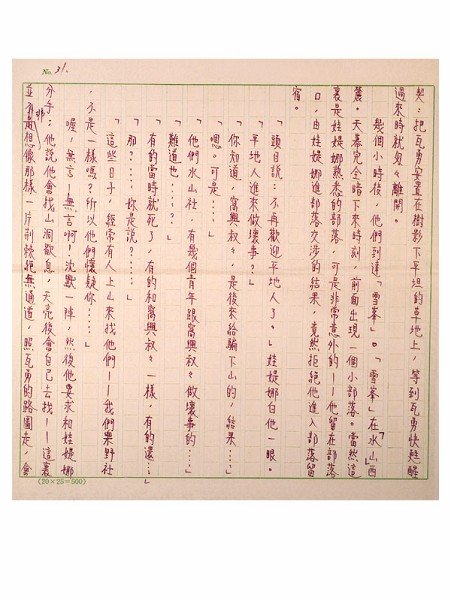 No. 31.
契:把瓦勇安置在樹影下平坦的草地上,等到瓦勇快甦醒
過來時就匆匆離開。
幾個小時後,他們到達「雪峯」。「雪峯」在「水山」西
麓。天幕完全暗下來時刻,前面出現一個小部落。當然這
裏是娃媞娜熟悉的部落,可是非常意外的——他留在部落
口,由娃媞娜進部落交涉的結果,竟然拒絕他進入部落留
宿。
「頭目說:不再歡迎平地人了。」娃媞娜白他一眼。
「平地人進來做壞事?」
「你知道,窩興叔叔,是後來給騙下山的,結果…」
「嗯。可是……」
「他們水山社,有幾個青年跟窩興叔叔做壞事的…」
「難道也…?」
「有的當時就死了,有的和窩興叔叔一樣,有的還…」
「那?……妳是說?……」
「這些日子,經常有人上山來找他們——我們樂野社
,不是一樣嗎?所以他們懷疑你……」
喔,無言——無言啊。沈默一陣,然後他要求和娃媞娜
分手:他說他會找山洞歇息,天亮後會自己去找——這裏
並非想像那樣一片荊棘絕無通道,照瓦勇的路圖走,會
(20×25=500)